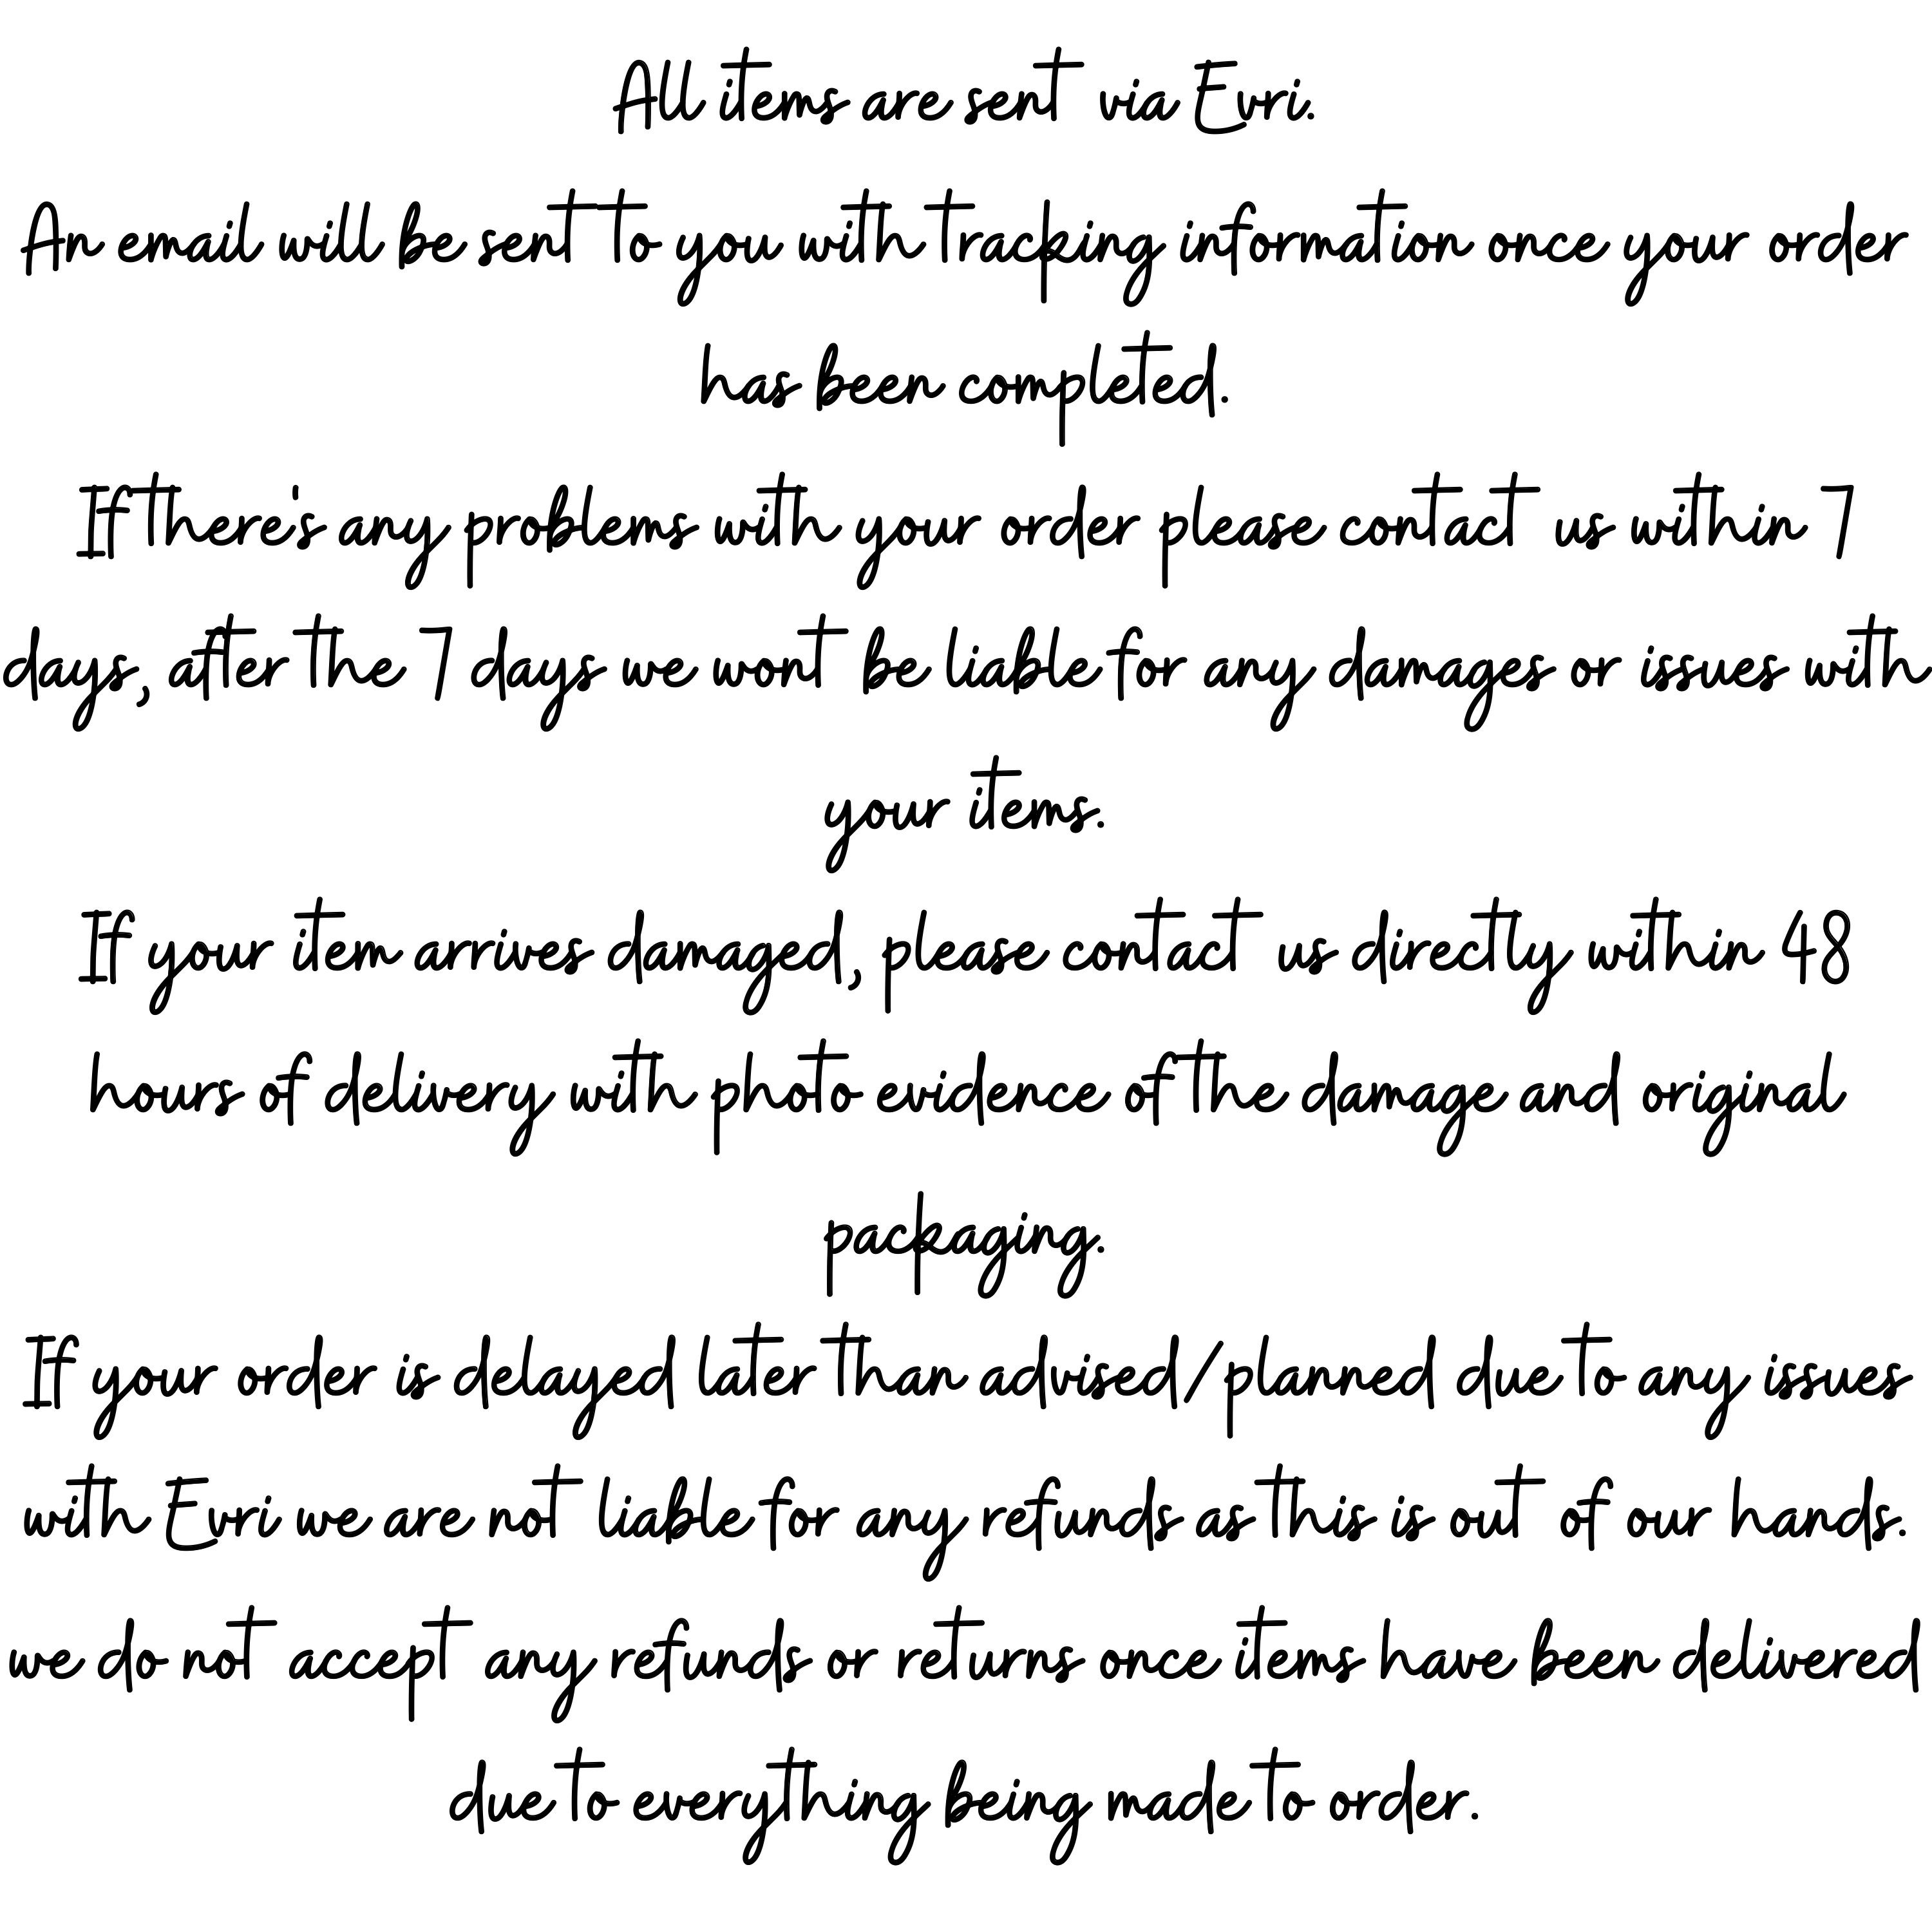 All items are sent via Evri.
An email will be sent to you with tracking information once your order
has been completed.
If there's any problems with your order please contact us within 7
days, after the 7 days we wont be liable for any damages or issues with
your items.
If your item arrives damaged, please contact us directly within 48
hours of delivery with photo evidence of the damage and original
packaging.
If your order is delayed later than advised/planned due to any issues
with Evri we are not liable for any refunds as this is out of our hands.
we do not accept any refunds or returns once items have been delivered
due to everything being made to order.